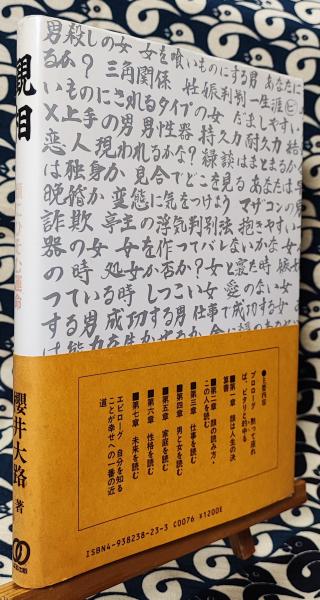 櫻井大路 著
男殺しの女 女を喰いものにする男 あなたに
るか? 三角関係 妊娠判別 一生涯
いものにされるタイプの女 だましやすい
X上手の男 男性器 持久力 耐久力 結
恋人 現われるかな? 縁談はまとまるか
は独身か 見合でどこを見る あなたは早
晩婚か 変態に気をつけよう マザコンの男
詐欺 亭主の浮気判別法 抱きやすい
器の女 女を作ってバレないかな 女
の時 処女か否か? 女と寝た時
っている時 しつこい女 愛のない女
する男 成功する男 仕事で成功する女
●主要内容
プロローグ 黙って座れ
ば、ピタリと的中る
■第一章 顔は人生の決
算書
■第二章 顔の読み方・
この人を読む
■第三章 仕事を読む
■第四章 男と女を読む
■第五章 家庭を読む
■第六章 性格を読む
■第七章 未来を読む
エピローグ 自分を知る
ことが幸せへの一番の近
道
ISBN4-938238-23-3 C0076 ¥1200E